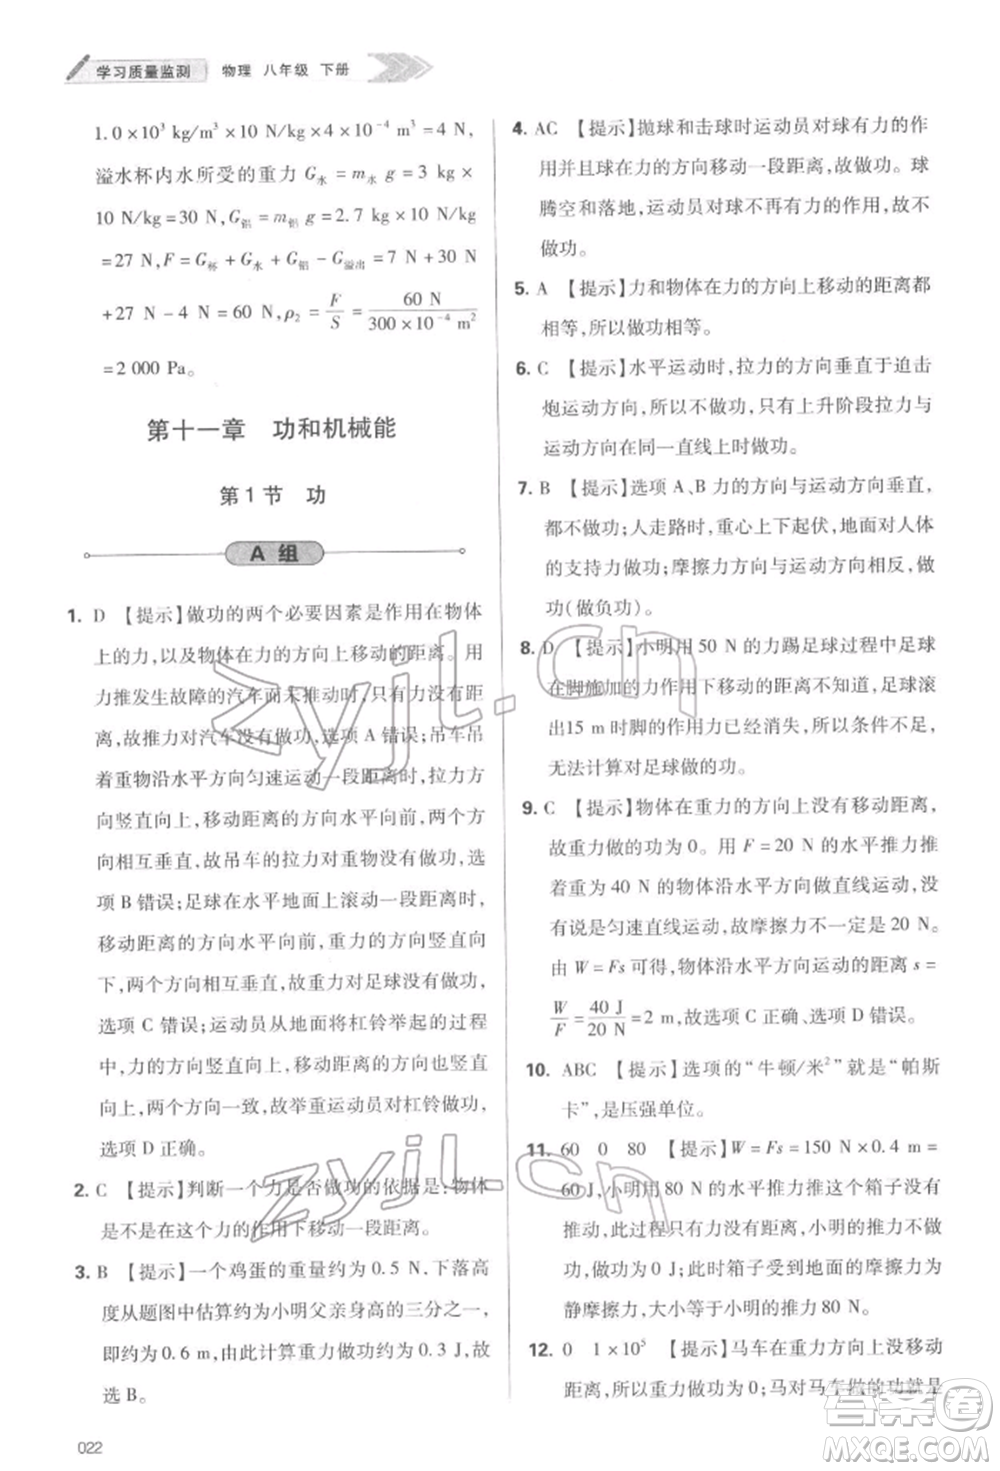 学习质量监测 物理 八年级 下册
1.0×10³ kg/m³×10 N/kg×4×10⁻⁴ m³=4 N,
溢水杯内水所受的重力 G水=m水 g=3 kg×
10 N/kg=30 N,G铝=m铝 g=2.7 kg×10 N/kg
=27 N,F=G杯+G水+G铝-G溢出=7 N+30 N
+27 N-4 N=60 N,ρ₂=F/S=60 N/300×10⁻⁴ m²
=2 000 Pa。
第十一章 功和机械能
第1节 功
A 组
1. D 【提示】做功的两个必要因素是作用在物体
上的力,以及物体在力的方向上移动的距离。用
力推发生故障的汽车而未推动时,只有力没有距
离,故推力对汽车没有做功,选项 A 错误;吊车吊
着重物沿水平方向匀速运动一段距离时,拉力方
向竖直向上,移动距离的方向水平向前,两个方
向相互垂直,故吊车的拉力对重物没有做功,选
项 B 错误;足球在水平地面上滚动一段距离时,
移动距离的方向水平向前,重力的方向竖直向
下,两个方向相互垂直,故重力对足球没有做功,
选项 C 错误;运动员从地面将杠铃举起的过程
中,力的方向竖直向上,移动距离的方向也竖直
向上,两个方向一致,故举重运动员对杠铃做功,
选项 D 正确。
2. C 【提示】判断一个力是否做功的依据是:物体
是不是在这个力的作用下移动一段距离。
3. B 【提示】一个鸡蛋的重量约为 0.5 N,下落高
度从题图中估算约为小明父亲身高的三分之一,
即约为 0.6 m,由此计算重力做功约为 0.3 J,故
选 B。
4. AC 【提示】抛球和击球时运动员对球有力的作
用并且球在力的方向移动一段距离,故做功。球
腾空和落地,运动员对球不再有力的作用,故不
做功。
5. A 【提示】力和物体在力的方向上移动的距离都
相等,所以做功相等。
6. C 【提示】水平运动时,拉力的方向垂直于迫击
炮运动方向,所以不做功。只有上升阶段拉力与
运动方向在同一直线上时做功。
7. B 【提示】选项 A、B 力的方向与运动方向垂直,
都不做功;人走路时,重心上下起伏,地面对人体
的支持力做功;摩擦力方向与运动方向相反,做
功(做负功)。
8. D 【提示】小明用 50 N 的力踢足球过程中足球
在脚施加的力作用下移动的距离不知道,足球滚
出15 m 时脚的作用力已经消失,所以条件不足,
无法计算对足球做的功。
9. C 【提示】物体在重力的方向上没有移动距离,
故重力做的功为 0。用 F=20 N 的水平推力推
着重为 40 N 的物体沿水平方向做直线运动,没
有说是匀速直线运动,故摩擦力不一定是 20 N。
由 W=Fs 可得,物体沿水平方向运动的距离 s=
W/F=40 J/20 N=2 m,故选项 C 正确、选项 D 错误。
10. ABC 【提示】选项的“牛顿/米²”就是“帕斯
卡”,是压强单位。
11. 60 0 80 【提示】W=Fs=150 N×0.4 m=
60 J,小明用 80 N 的水平推力推这个箱子没有
推动,此过程只有力没有距离,小明的推力不做
功,功为 0 J;此时箱子和地面之间的摩擦力是
静摩擦力,大小等于小明的推力 80 N。
12. 0 1×10⁵ 【提示】马车在重力方向上没移动
距离,所以重力做功为 0;马对马车做的功就是
022
zyjl.cn
zyjl.cn
答案圈
MXQE.COM